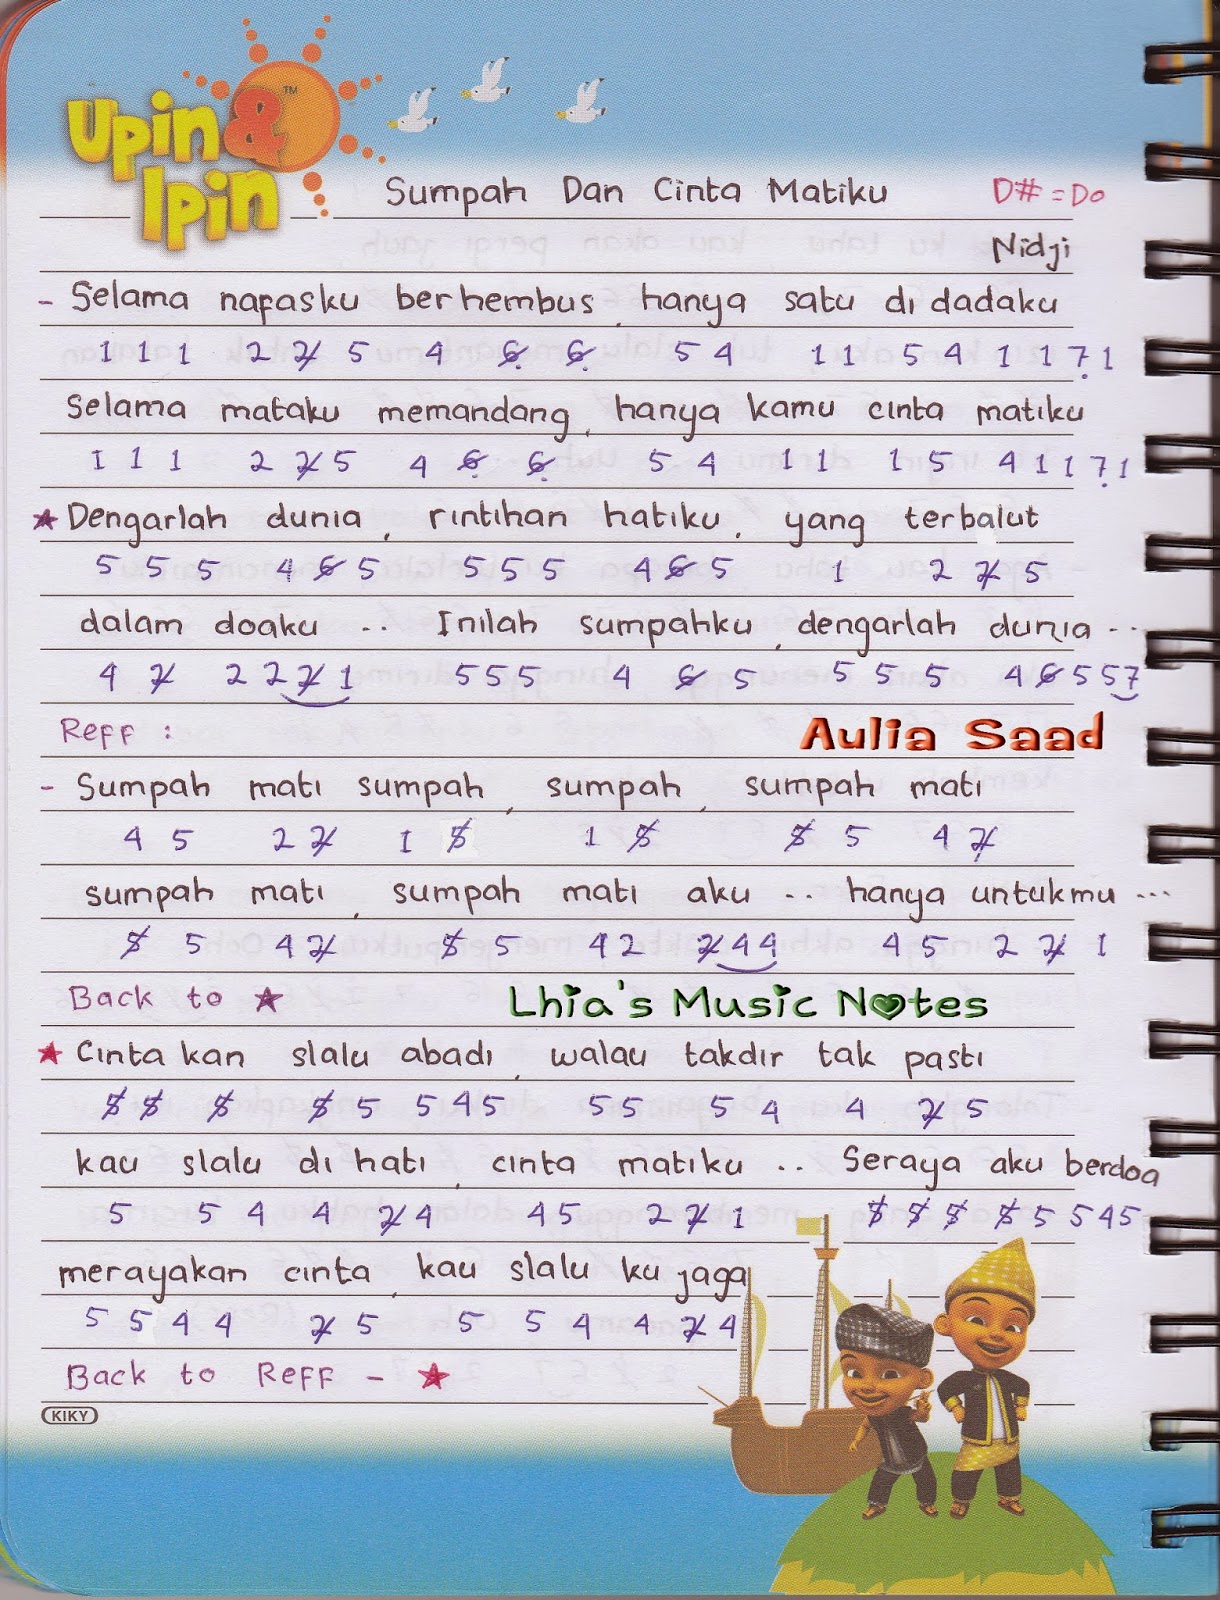 Upin &™
Ipin
Sumpah Dan Cinta Matiku D# = Do
Nidji
- Selama nafasku berhembus, hanya satu di dadaku
1 1 1 2 2̸ 5 4 6̸̣ 6̸̣ 5 4 1 1 5 4 1 1 7̣ 1
Selama mataku memandang, hanya kamu cinta matiku
1 1 1 2 2̸ 5 4 6̸̣ 6̸̣ 5 4 1 1 1 5 4 1 1 7̣ 1
★ Dengarlah dunia, rintihan hatiku, yang terbalut
5 5 5 4 6̸ 5 5 5 5 4 6̸ 5 1 2 2̸ 5
dalam doaku .. Inilah sumpahku, dengarlah dunia ..
4 2̸ 2 2 2̸ 1 5 5 5 4 6̸ 5 5 5 5 4 6̸ 5 5 7
Reff :
Aulia Saad
- Sumpah mati sumpah, sumpah, sumpah mati
4 5 2 2̸ 1 5̸ 1 5̸ 5̸ 5 4 2̸
sumpah mati, sumpah mati aku .. hanya untukmu ...
5̸ 5 4 2̸ 5̸ 5 4 2 2̸ 4 4 4 5 2 2̸ 1
Back to ★
Lhia's Music Notes
★ Cinta kan slalu abadi, walau takdir tak pasti
5̸ 5̸ 5̸ 5̸ 5 5 4 5 5 5 5 4 4 2̸ 5
kau slalu di hati, cinta matiku .. Seraya aku berdoa
5 5 4 4 2̸ 4 4 5 2 2̸ 1 5̸ 5̸ 5̸ 5̸ 5 5 4 5
merayakan cinta, kau slalu ku jaga
5 5 4 4 2̸ 5 5 5 4 4 2̸ 4
Back to Reff - ★
KIKY